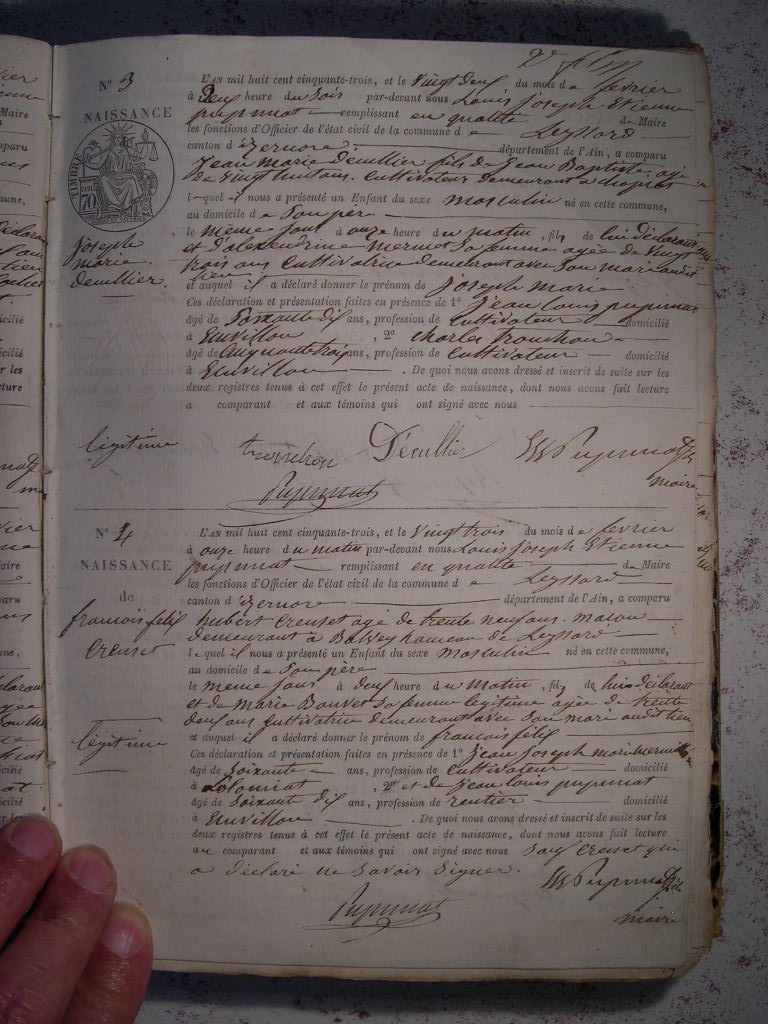 N° 3
NAISSANCE
TIMBRE
70
joseph
marie
decullier.
légitime
L'AN mil huit cent cinquante-trois, et le vingt deux du mois de fevrier
à Deux heure du soir par-devant nous Louis Joseph Etienne
pupunat remplissant en qualité de Maire
les fonctions d'Officier de l'état civil de la commune de Leyssard
canton d'izernore département de l'Ain, a comparu
Jean Marie Decullier fils de Jean Baptiste agé
de vingt huit ans. Cultivateur demeurant a
lequel il nous a présenté un Enfant du sexe masculin né en cette commune,
au domicile de son père
le même jour à onze heure du matin, fils de lui déclarant
et d'alexendrine mermet sa femme agée de vingt
trois ans cultivatrice demeurant avec son mari audit
lieu
et auquel il a déclaré donner le prénom de joseph marie
Ces déclaration et présentation faites en présence de 1° jean louis pupunat
âgé de soixante dix ans, profession de cultivateur domicilié
à Euvillon, 2° charles
âgé de cinquante trois ans, profession de cultivateur domicilié
à Euvillon. De quoi nous avons dressé et inscrit de suite sur les
deux registres tenus à cet effet le présent acte de naissance, dont nous avons fait lecture
a comparant et aux témoins qui ont signé avec nous
Décullier Pupunat fils
maire
Pupunat
N° 4
NAISSANCE
de
francois felix
Creuset
légitime
L'AN mil huit cent cinquante-trois, et le vingt trois du mois de fevrier
à onze heure du matin par-devant nous Louis Joseph Etienne
pupunat remplissant en qualité de Maire
les fonctions d'Officier de l'état civil de la commune de Leyssard
canton d'izernore département de l'Ain, a comparu
hubert Creuset agé de trente neuf ans. maçon
demeurant à Balvey hameau de Leyssard
lequel il nous a présenté un Enfant du sexe masculin né en cette commune,
au domicile de son père
le même jour à deux heure du matin, fils de lui déclarant
et de Marie Bouvet sa femme legitime agée de trente
deux ans cultivatrice demeurant avec son mari audit lieu
et auquel il a déclaré donner le prénom de francois felix
Ces déclaration et présentation faites en présence de 1° Jean Joseph marie
âgé de soixante ans, profession de cultivateur domicilié
à Solomiat, 2° et de Jean louis pupunat
âgé de soixante dix ans, profession de rentier domicilié
à Euvillon. De quoi nous avons dressé et inscrit de suite sur les
deux registres tenus à cet effet le présent acte de naissance, dont nous avons fait lecture
au comparant et aux témoins qui ont signé avec nous sauf Creuset qui
a déclaré ne savoir signer.
Pupunat fils
maire
Pupunat